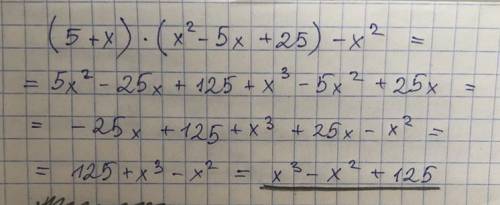 (5+x)·(x²-5x+25)-x² =
= 5x²-25x+125+x³-5x²+25x =
= -25x+125+x³+25x-x² =
= 125+x³-x² = x³-x²+125